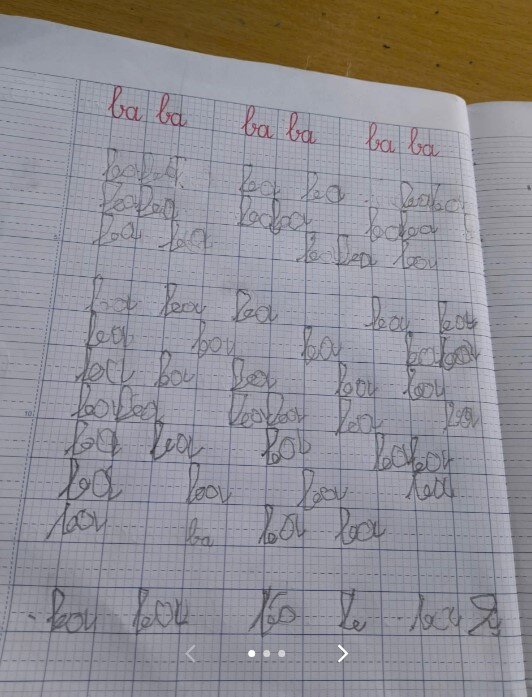 ba ba ba ba ba ba
ba ba ba ba ba ba
ba ba ba ba ba ba
ba ba ba ba ba
ba ba ba ba ba
ba ba ba ba ba
ba ba ba ba ba
ba ba ba ba ba ba
ba ba ba ba ba
ba ba ba ba
ba ba ba ba
ba ba